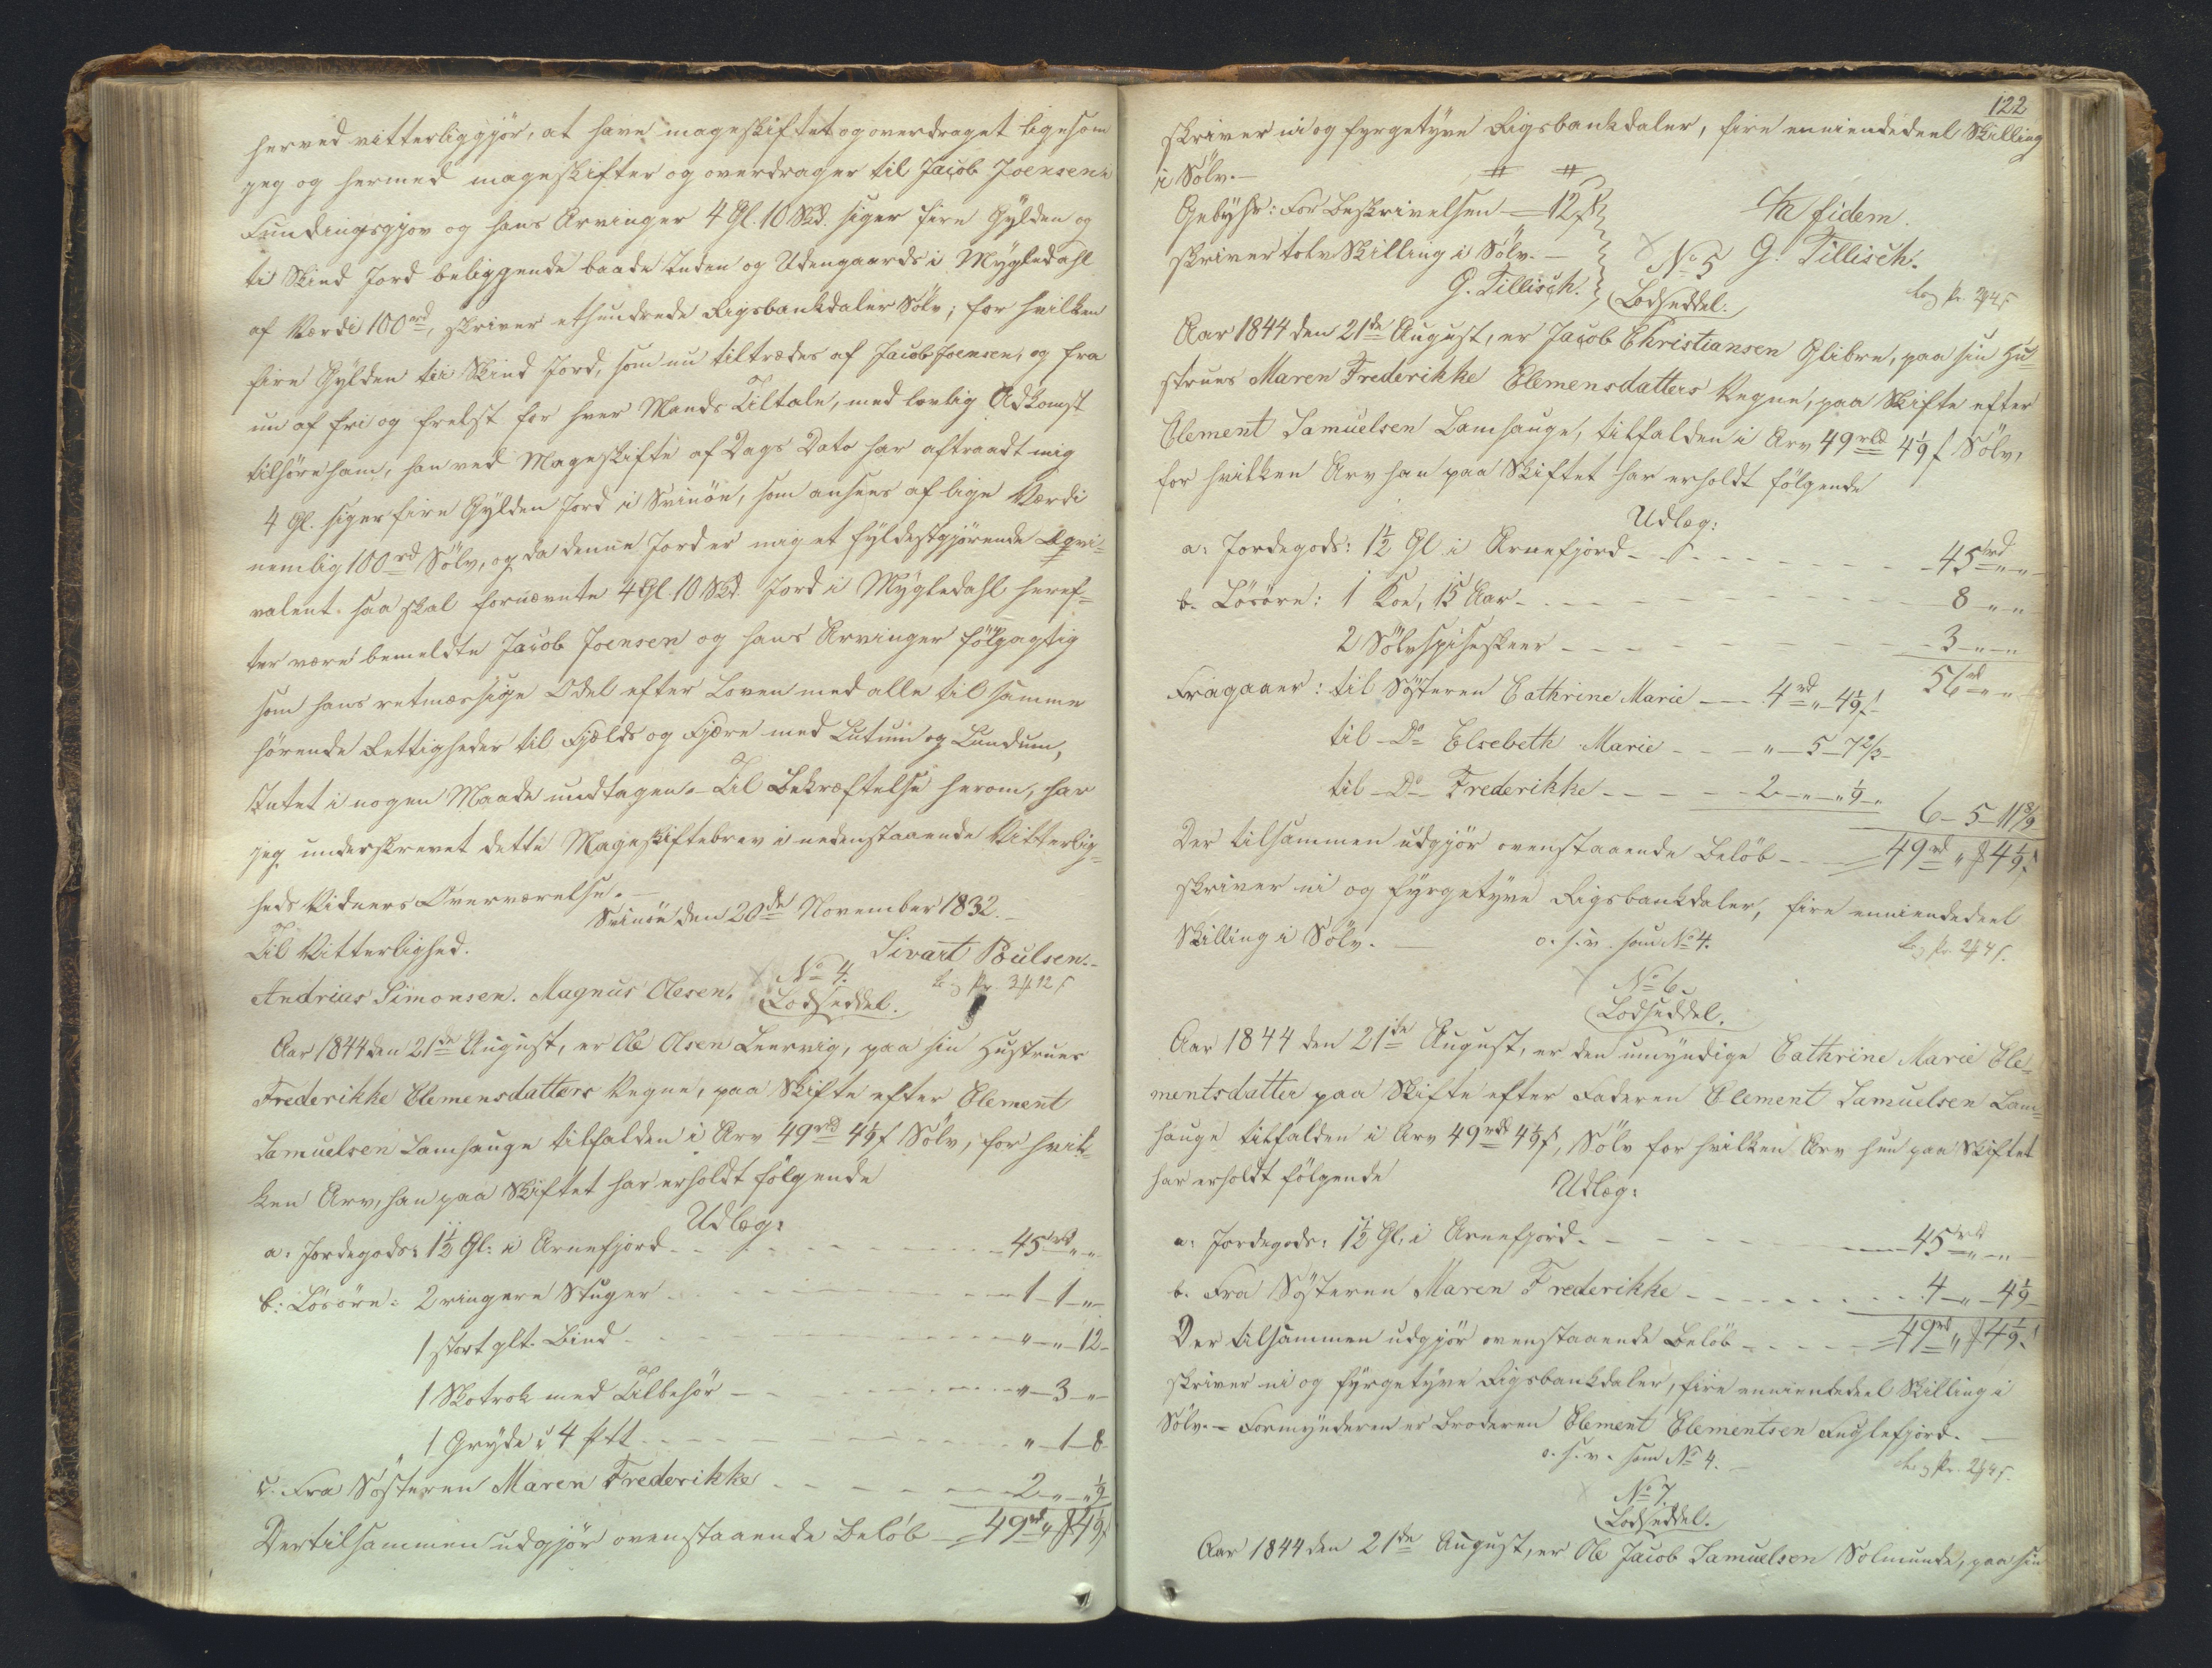 herved vitterliggjör, at have mageskiftet og overdraget ligesom
jeg og hermed mageskifter og overdrager til Jacob Joensen i
Fundingsgjov og hans Arvinger 4 Gl. 10 Skd. siger fire Gylden og
ti Skind Jord beliggende baade Inden og Udengaards i Mygledahl
af Værdi 100rd, skriver ethundrede Rigsbankdaler Sölv; for hvilken
fire Gylden tii Skind Jord, som nu tiltrædes af Jacob Joensen, og fra
nu af fri og frelst for hver Mands Tiltale, med lovlig Adkomst
tilhöre ham, han ved Mageskifte af Dags Dato har aftraadt mig
4 Gl. siger fire Gylden Jord i Svinöe, som ansees af lige Værdi
nemlig 100rd Sölv, og da denne Jord er mig et fyldestgjörende Æqvi-
valent saa skal fornævnte 4 Gl. 10 Skd. Jord i Mygledahl heref-
ter være bemeldte Jacob Joensen og hans Arvinger fölgagtig
som hans retmæssige Odel efter Loven med alle til samme
hörende Rettigheder til Fjelds og Fjære med Lutum og Lundum,
Intet i nogen Maade undtagen. - Til Bekræftelse herom, har
jeg underskrevet dette Mageskiftebrev i nedenstaaende Vitterlig-
heds Vidners Overværelse. -
Svinöe den 20de November 1832. -
Til Vitterlighed.
Sivart Poulsen. -
Andrias Simonsen. Magnus Olesen.
No 4.
Lodseddel.
Aar 1844 den 21de August, er Ole Olsen Leervig, paa sin Hustrues
Frederikke Clemensdatters Vegne, paa Skifte efter Clement
Samuelsen Lamhauge tilfalden i Arv 49rbd 4 1/9 s Sölv, for hvil-
ken Arv, han paa Skiftet har erholdt fölgende
Udlæg:
a: Jordegods: 1 1/2 Gl: i Arnefjord - - - 45rbd " "
b: Lösöre: 2 ringere Stuger - - - 1 - 1 - "
1 stort glt. Bind - - - " - " - 12 -
1 Skotrok med Tilbehör - - - " - 3 - "
1 Gryde i 4 ptt - - - " - 1 - 8
c. Fra Sösteren Maren Frederikke - - - 2 - " - " 1/9
Der tilsammen udgjör ovenstaaende Belöb - 49rd " ß 4 1/9 s
122
skriver ni og fyrgetyve Rigsbankdaler, fire enniendedeel Skilling
i Sölv. -
Gebyhr: For Beskrivelsen - 12 s
skriver tolv Skilling i Sölv. -
G. Tillisch.
In fidem.
G. Tillisch.
No 5
Lodseddel.
Aar 1844 den 21de August, er Jacob Christiansen Glibre, paa sin Hu-
strues Maren Frederikke Clemensdatters Vegne, paa Skifte efter
Clement Samuelsen Lamhauge, tilfalden i Arv 49rbd 4 1/9 s Sölv,
for hvilken Arv han paa Skiftet har erholdt fölgende
Udlæg:
a: Jordegods: 1 1/2 Gl i Arnefjord - - - 45rbd " "
b. Lösöre: 1 Koe, 15 Aar - - - 8 - " - "
2 Sölvspiseskeer - - - 3 - " - "
56rd " "
Fragaaer: til Sösteren Cathrine Marie - - 4rd " 4 1/9 s
til Do Elsebeth Marie - - - " - 5 - 7 2/3 -
til Do Frederikke - - - 2 - " - " 1/9 -
6 - 5 - 11 8/9
Der tilsammen udgjör ovenstaaende Belöb - - - 49rd " ß 4 1/9 s
skriver ni og fyrgetyve Rigsbankdaler, fire enniendedeel
Skilling i Sölv. -
o. s. v. som No 4.
No 6.
Lodseddel.
Aar 1844 den 21de August, er den umyndige Cathrine Marie Cle-
mentsdatter paa Skifte efter Faderen Clement Samuelsen Lam-
hauge tilfalden i Arv 49rbd 4 1/9 s, Sölv for hvilken Arv hun paa Skiftet
har erholdt fölgende
Udlæg:
a: Jordegods: 1 1/2 Gl. i Arnefjord - - - 45rbd " "
b. Fra Sösteren Maren Frederikke - - - 4 - " - 4 1/9 -
Der tilsammen udgjör ovenstaaende Belöb - - - 49rd " ß 4 1/9 s
skriver ni og fyrgetyve Rigsbankdaler, fire enniendedeel Skilling i
Sölv. - Formynderen er Broderen Clement Clementsen Fuglefjord. -
o. s. v. som No 4. -
No 7.
Lodseddel.
Aar 1844 den 21de August, er Ole Jacob Samuelsen Solmunde, paa sin